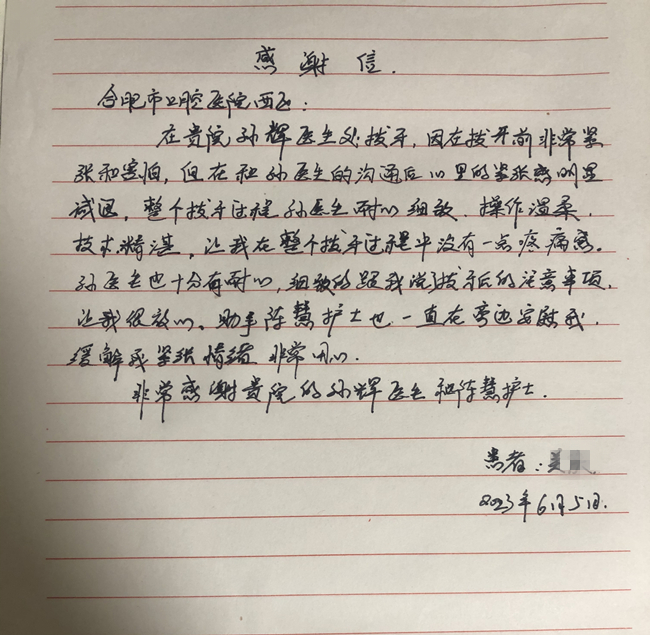 感谢信.
合肥市口腔医院西区:
在贵院孙辉医生处拔牙,因在拔牙前非常紧
张和害怕,但在和孙医生的沟通后心里的紧张感明显
减退,整个拔牙过程孙医生耐心细致、操作温柔、
技术精湛,让我在整个拔牙过程中没有一点疼痛感。
孙医生也十分有耐心,细致的跟我说了拔牙后的注意事项,
让我很放心。助手陈慧护士也一直在旁边安慰我,
缓解我紧张情绪 非常用心.
非常感谢贵院的孙辉医生和陈慧护士.
患者:
2023年6月5日.